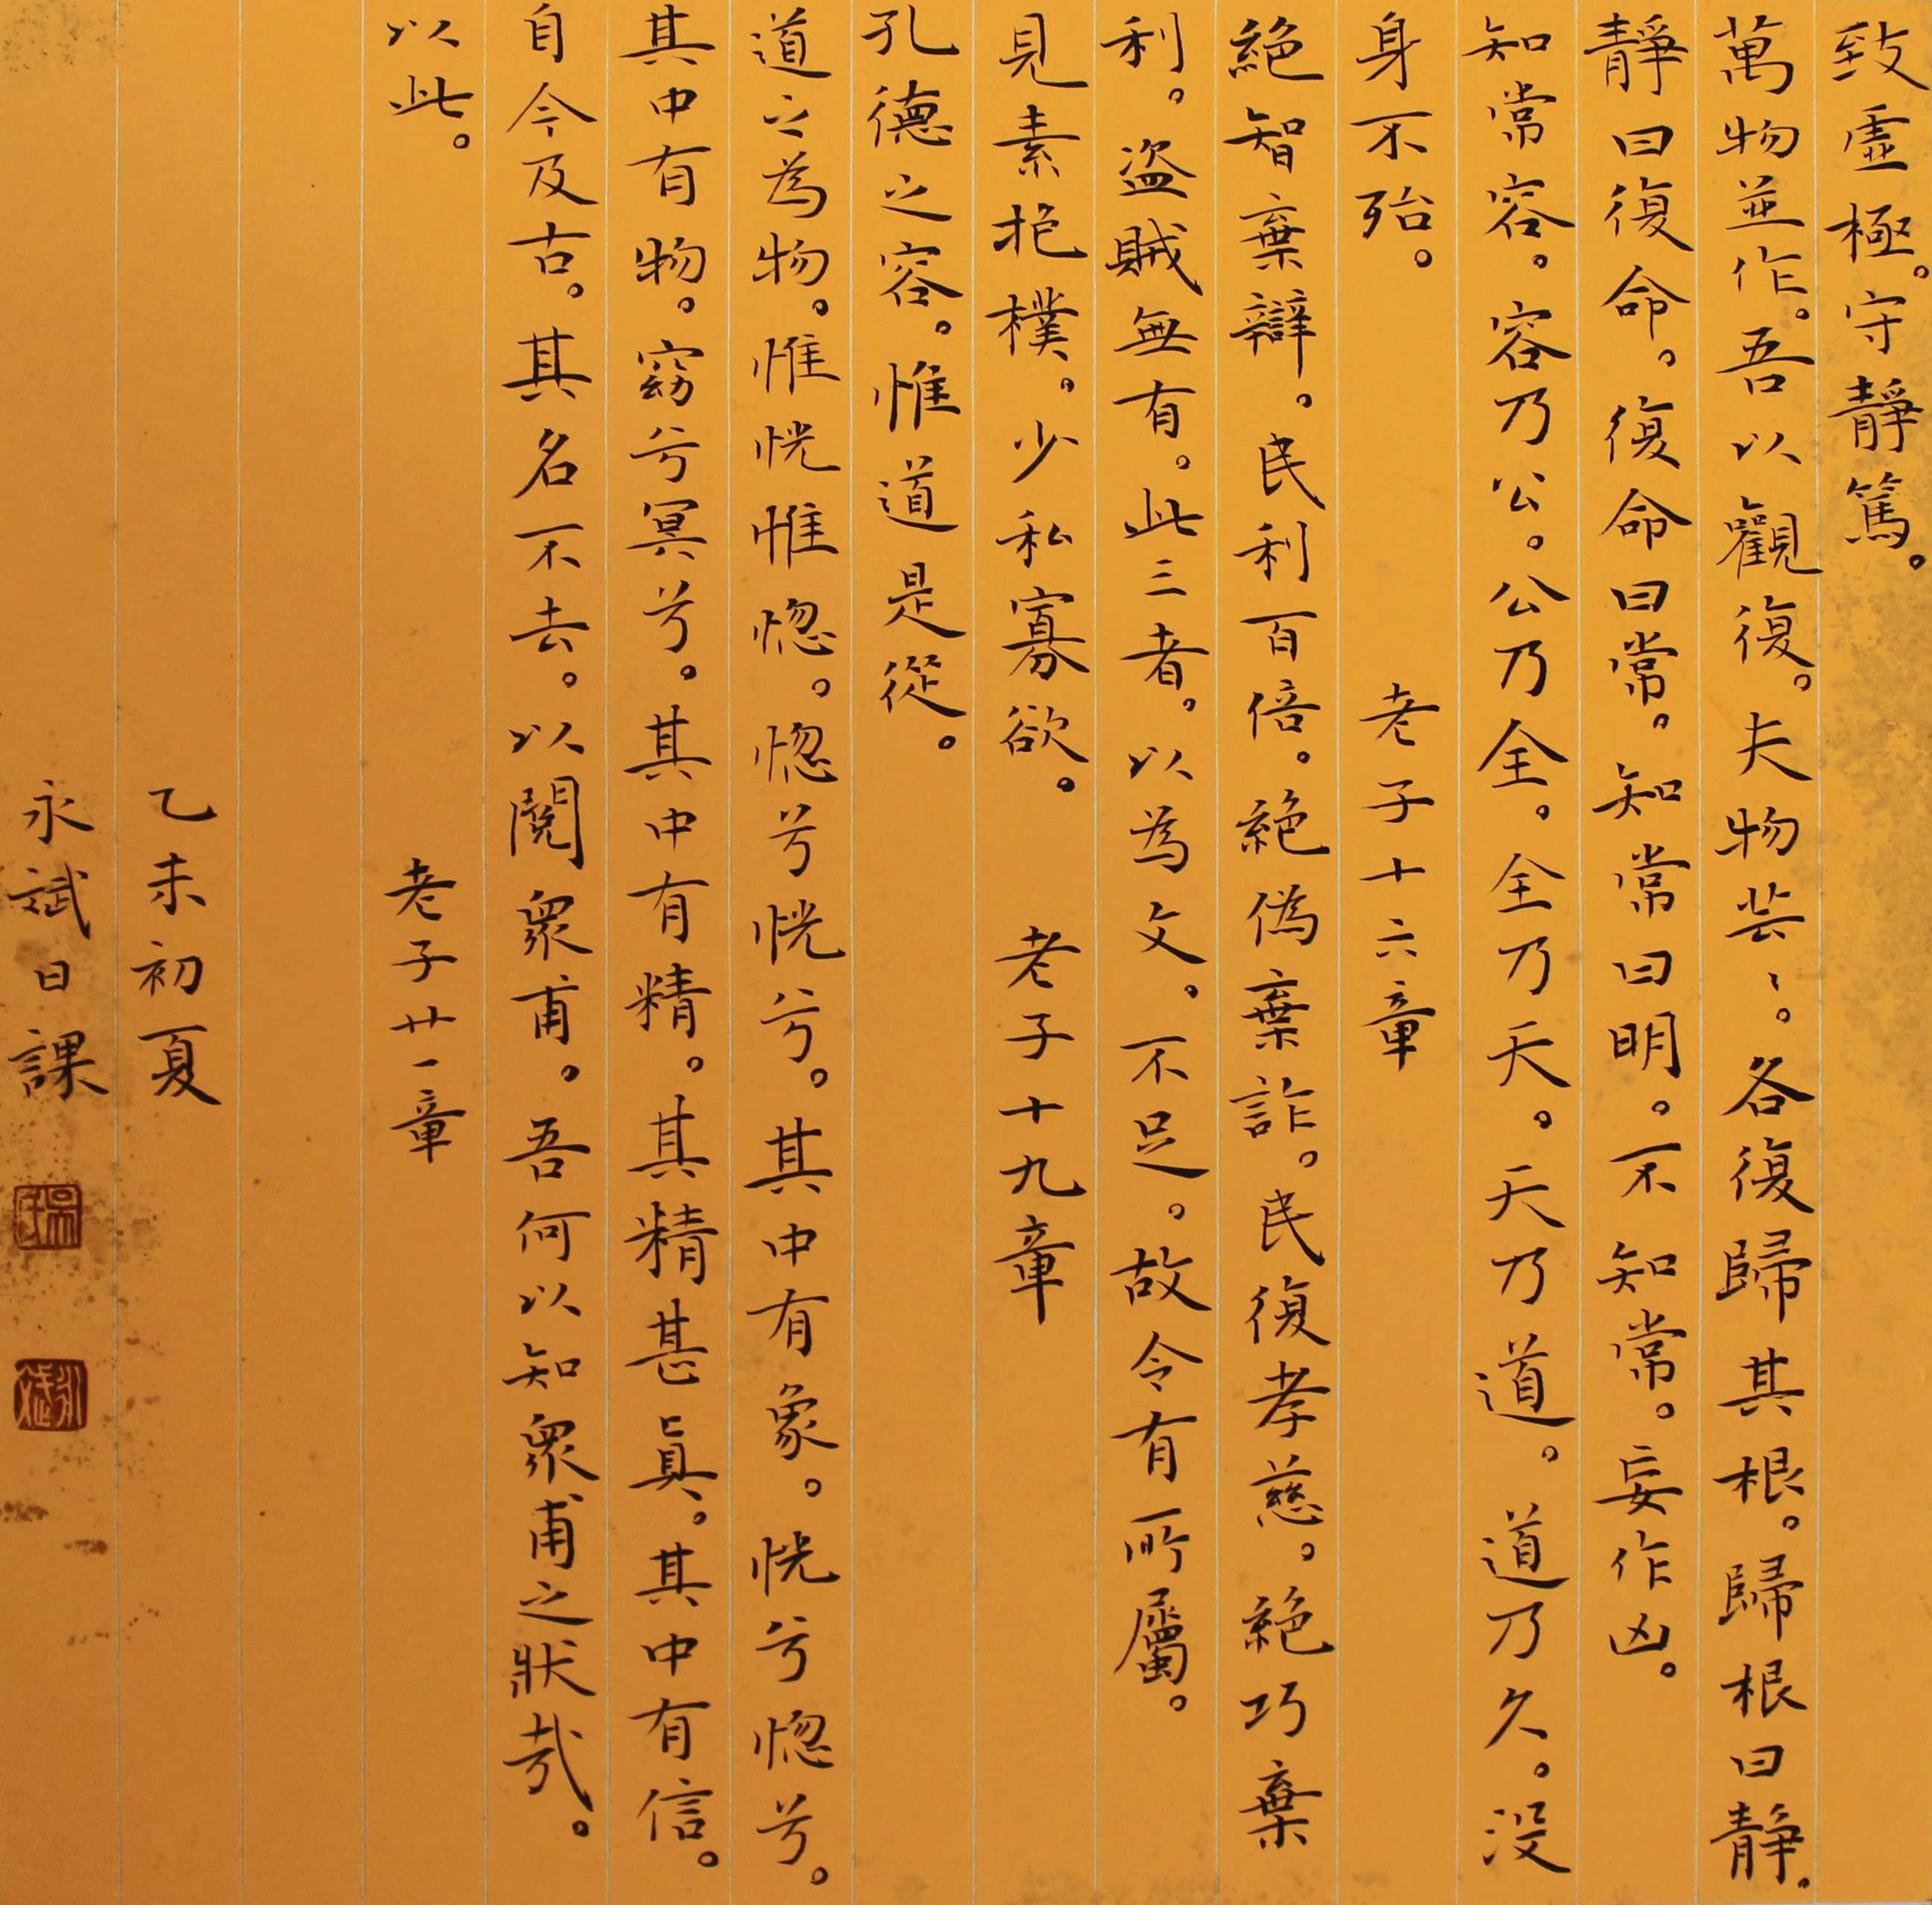 致虛極。守靜篤。
萬物並作。吾以觀復。夫物芸〻。各復歸其根。歸根曰静。
靜曰復命。復命曰常。知常曰明。不知常。妄作凶。
知常容。容乃公。公乃全。全乃天。天乃道。道乃久。没
身不殆。
老子十六章
絕智棄辯。民利百倍。絕偽棄詐。民復孝慈。絕巧棄
利。盗賊無有。此三者。以為文。不足。故令有所屬。
見素抱樸。少私寡欲。
老子十九章
孔德之容。惟道是從。
道之為物。惟恍惟惚。惚兮恍兮。其中有象。恍兮惚兮。
其中有物。窈兮冥兮。其中有精。其精甚真。其中有信。
自今及古。其名不去。以閱眾甫。吾何以知眾甫之狀哉。
以此。
老子廿一章
乙未初夏
永斌日課